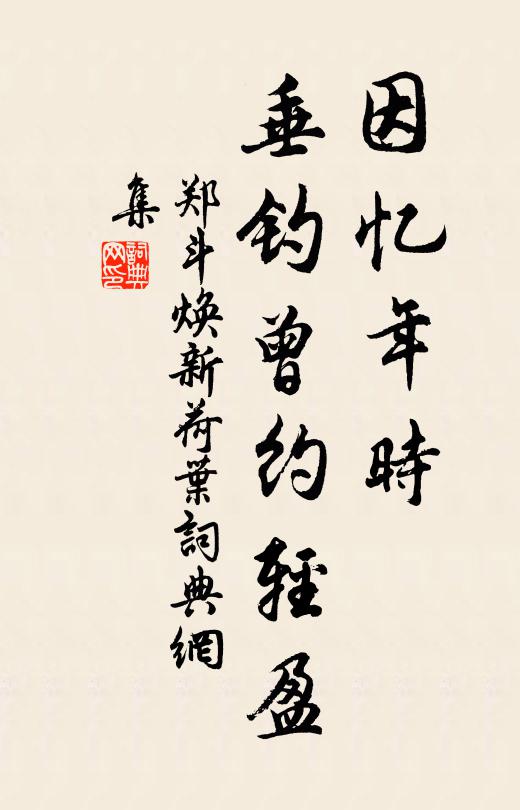 因忆年時
垂钓曾约輕盈
郑斗焕新荷葉詞典網
集
詞典
网印